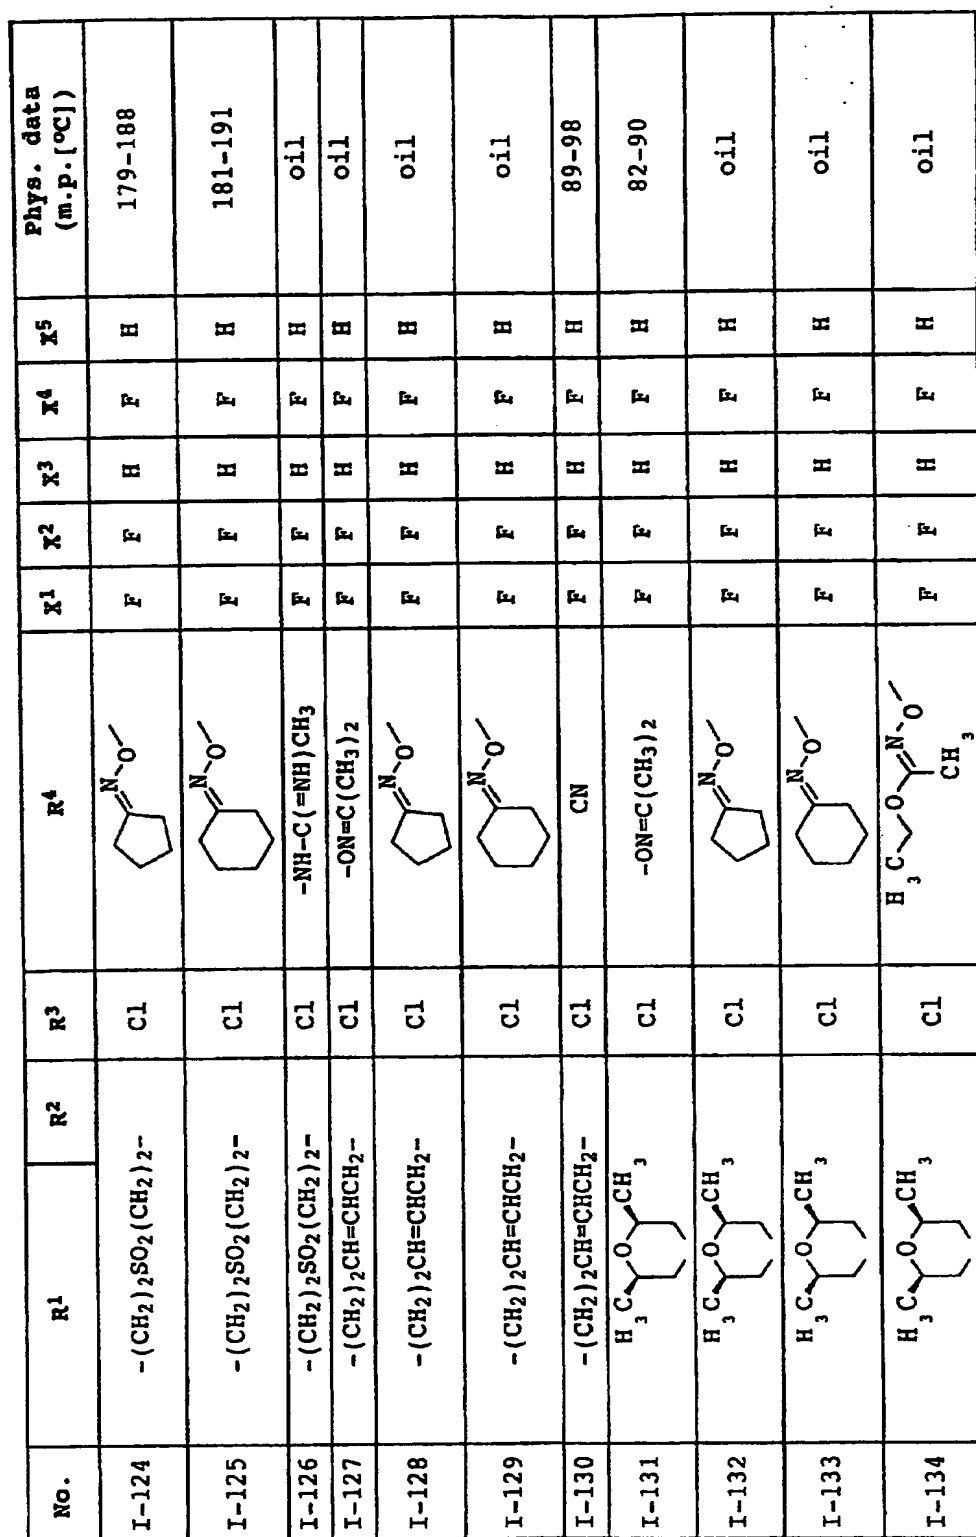 No. R¹ R² R³ R⁴ X¹ X² X³ X⁴ X⁵ Phys. data
(m.p.[°C])
I-124 -(CH₂)₂SO₂(CH₂)₂- Cl N O F F H F H 179-188
I-125 -(CH₂)₂SO₂(CH₂)₂- Cl N O F F H F H 181-191
I-126 -(CH₂)₂SO₂(CH₂)₂- Cl -NH-C(=NH)CH₃ F F H F H oil
I-127 -(CH₂)₂CH=CHCH₂- Cl -ON=C(CH₃)₂ F F H F H oil
I-128 -(CH₂)₂CH=CHCH₂- Cl N O F F H F H oil
I-129 -(CH₂)₂CH=CHCH₂- Cl N O F F H F H oil
I-130 -(CH₂)₂CH=CHCH₂- Cl CN F F H F H 89-98
I-131 H₃C O CH₃ Cl -ON=C(CH₃)₂ F F H F H 82-90
I-132 H₃C O CH₃ Cl N O F F H F H oil
I-133 H₃C O CH₃ Cl N O F F H F H oil
I-134 H₃C O CH₃ Cl H₃C O N O CH₃ F F H F H oil